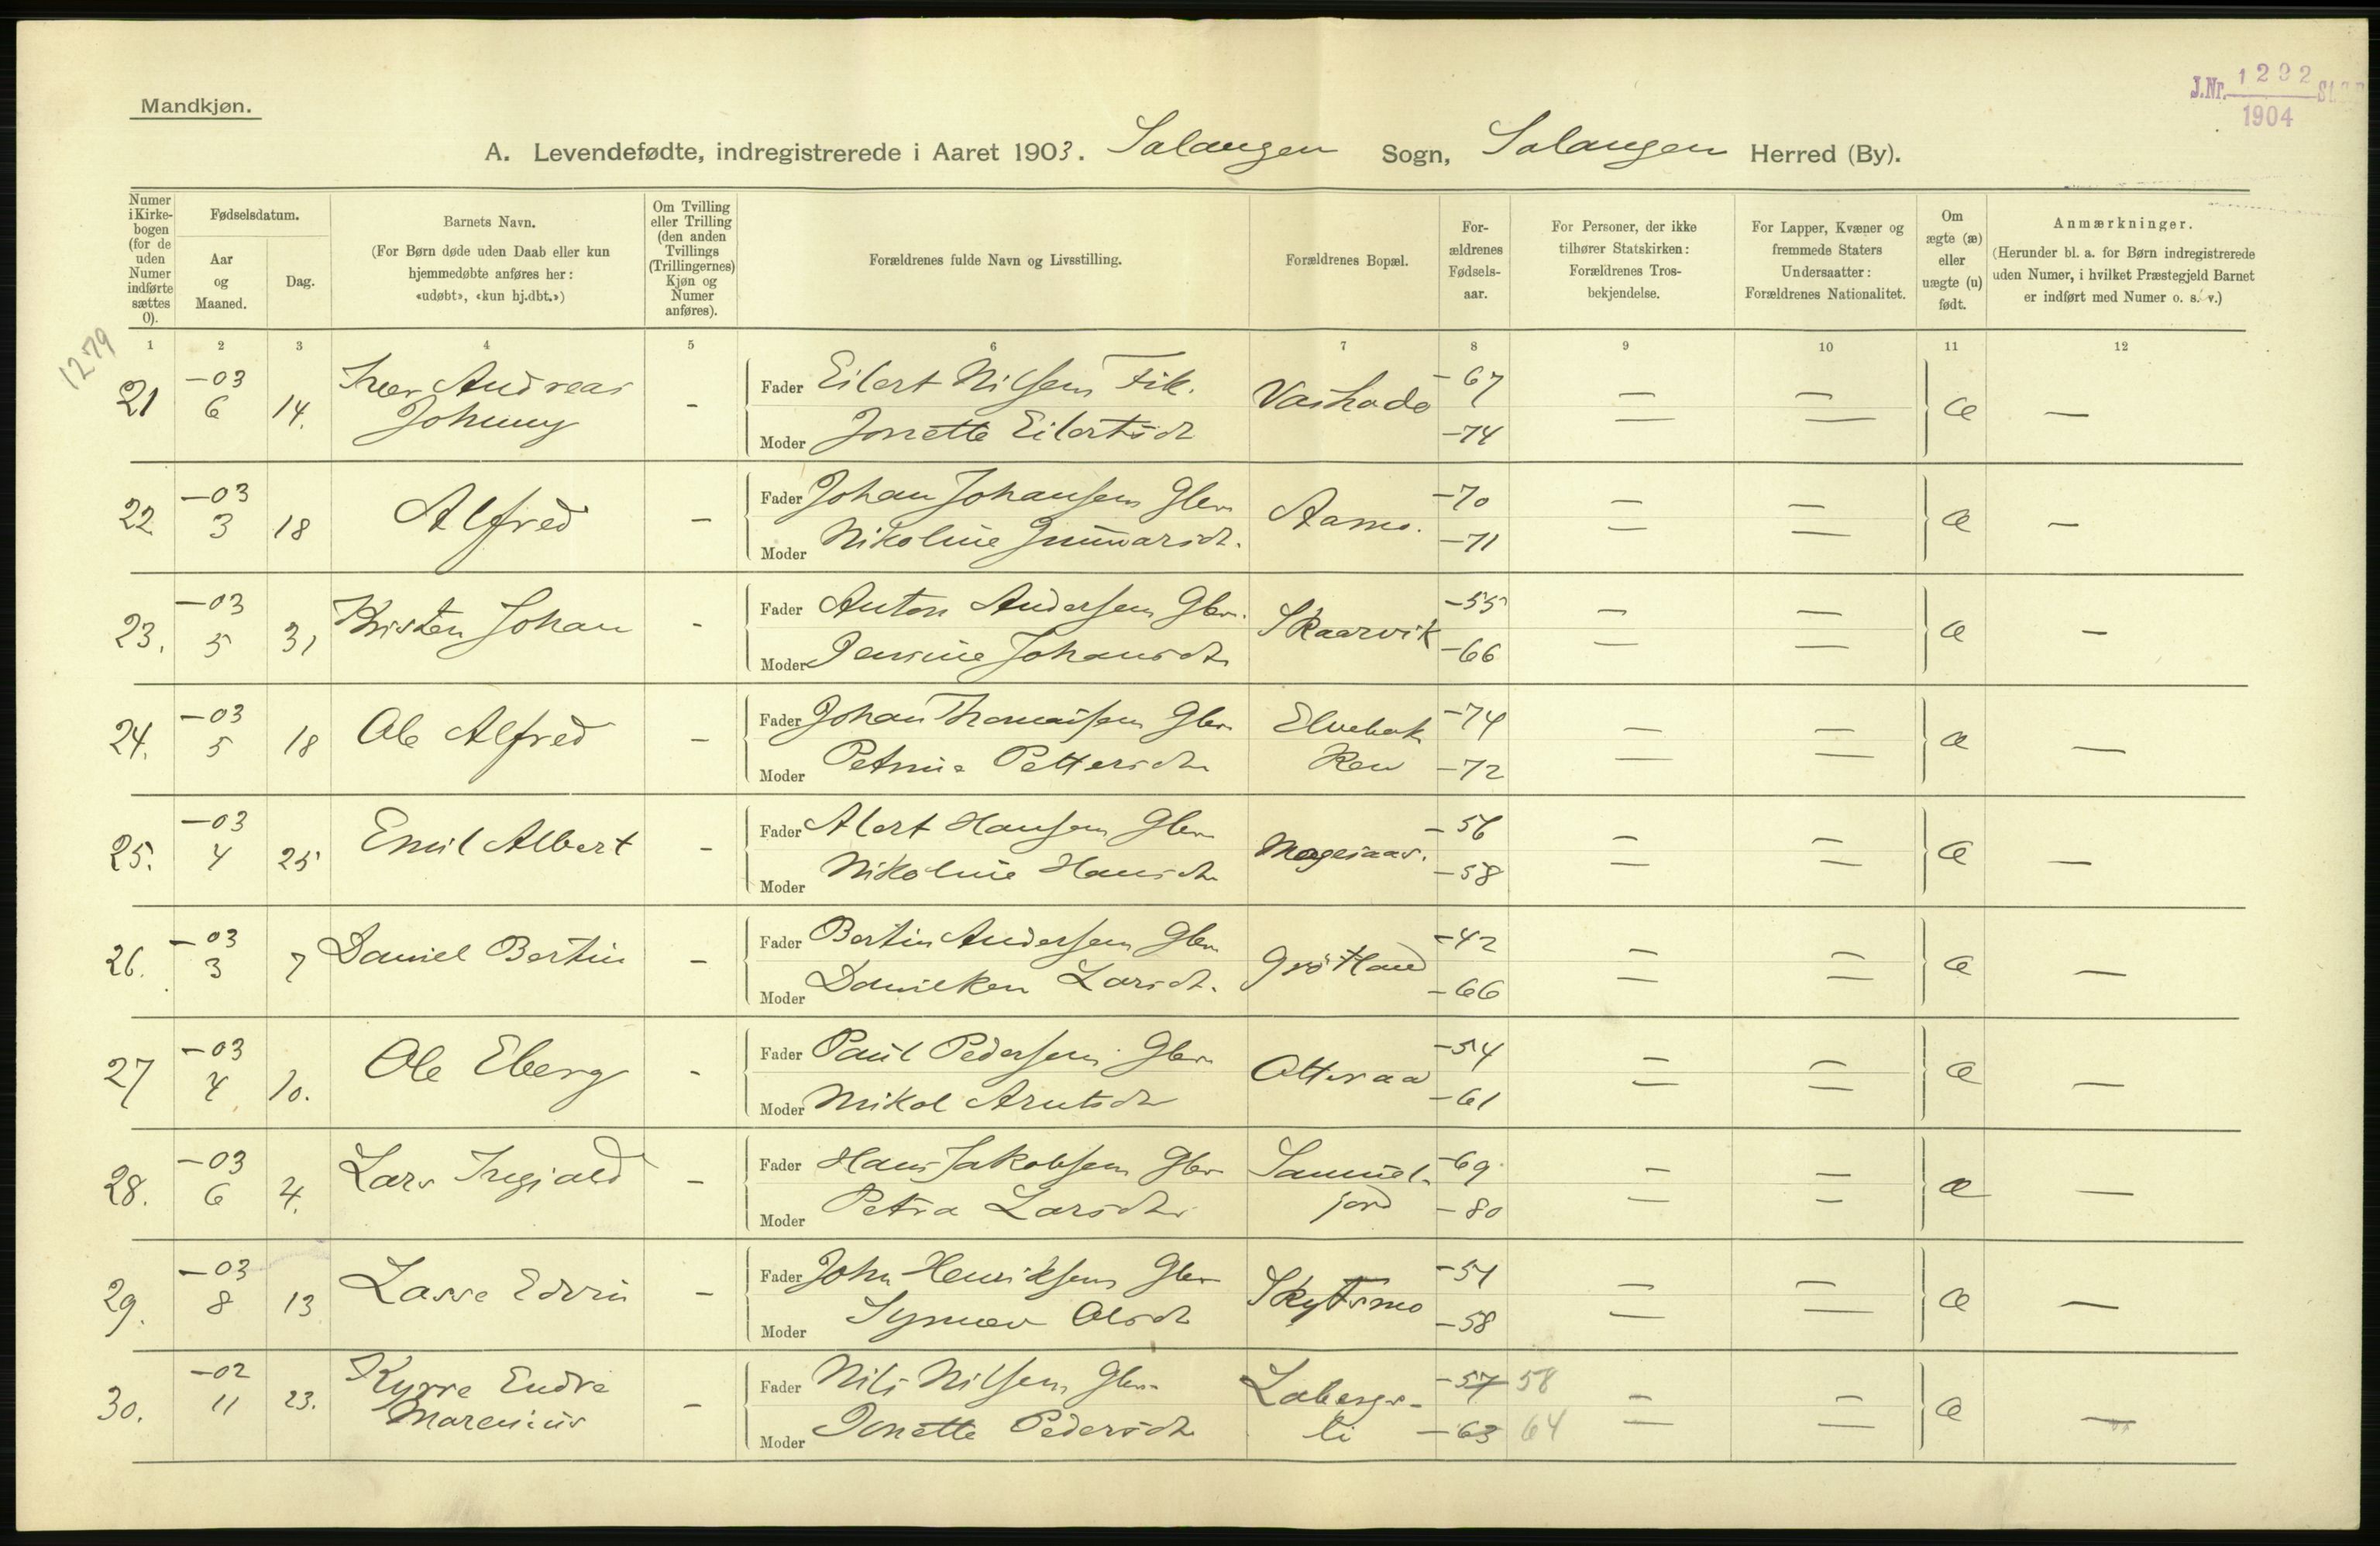 Mandkjøn.
J.Nr. 1292 1904
A. Levendefødte, indregistrerede i Aaret 1903. Salangen Sogn, Salangen Herred (By).
Numer i Kirkebogen (for de uden Numer indførte sættes 0).
Fødselsdatum.
Aar og Maaned.
Dag.
Barnets Navn.
(For Børn døde uden Daab eller kun hjemmedøbte anføres her: «udøbt», «kun hj.dbt.»)
Om Tvilling eller Trilling (den anden Tvillings (Trillingernes) Kjøn og Numer anføres).
Forældrenes fulde Navn og Livsstilling.
Forældrenes Bopæl.
Forældrenes Fødselsaar.
For Personer, der ikke tilhører Statskirken: Forældrenes Trosbekjendelse.
For Lapper, Kvæner og fremmede Staters Undersaatter: Forældrenes Nationalitet.
Om ægte (æ) eller uægte (u) født.
Anmærkninger.
(Herunder bl. a. for Børn indregistrerede uden Numer, i hvilket Præstegjeld Barnet er indført med Numer o. s. v.)
1 2 3 4 5 6 7 8 9 10 11 12
1279
21 -03 6 14. Iver Andreas Johnny - Fader Eilert Nilsen Fik. Vashode -67 — — æ —
Moder Jonette Eilertsdt -74 — —
22 -03 3 18 Alfred - Fader Johan Johansen Gbr Aamo. -70 — — æ —
Moder Nikoline Gunnarsdt. -71 — —
23. -03 5 31 Kristen Johan - Fader Anton Andersen Gbr. Skaarvik -55 — — æ —
Moder Jensine Johansdt -66 — —
24. -03 5 18 Ole Alfred - Fader Johan Thomassen Gbr Elvebakken -74 — — æ —
Moder Petrine Pettersdt -72 — —
25. -03 4 25 Emil Albert - Fader Alert Hansen Gbr -56 — — æ —
Moder Nikoline Hansdt -58 — —
26. -03 3 7 Daniel Bertin - Fader Bertin Andersen Gbr Grøtland -42 — — æ —
Moder Danikken Larsdt. -66 — —
27 -03 4 10. Ole Eberg - Fader Paul Pedersen Gbr Otteraa -54 — — æ —
Moder Nikol Arntsdt -61 — —
28. -03 6 4. Lars Ingjald - Fader Hans Jakobsen Gbr Samueljord -69 — — æ —
Moder Petra Larsdt -80 — —
29. -03 8 13 Lasse Edvin - Fader John Henriksen Gbr Skytsmo -51 — — æ —
Moder Synnøv Olsdt -58 — —
30. -02 11 23. Kyrre Endre Marenius - Fader Nils Nilsen Gbr. Labergsli -57 58 — — æ —
Moder Jonette Pedersdt -63 64 — —